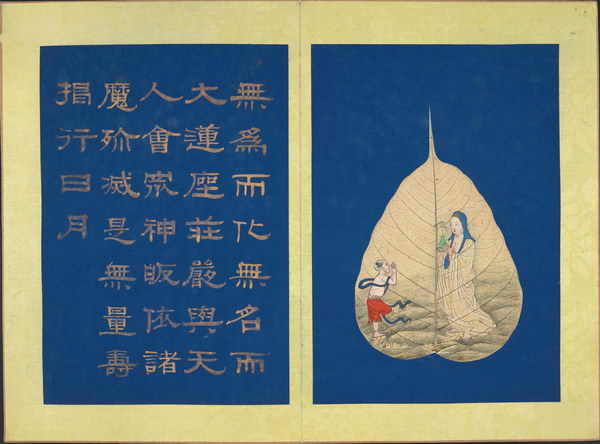 無爲而化無名而
大蓮座莊嚴與天
人會衆神皈依諸
魔殄滅是無量壽
揭行日月